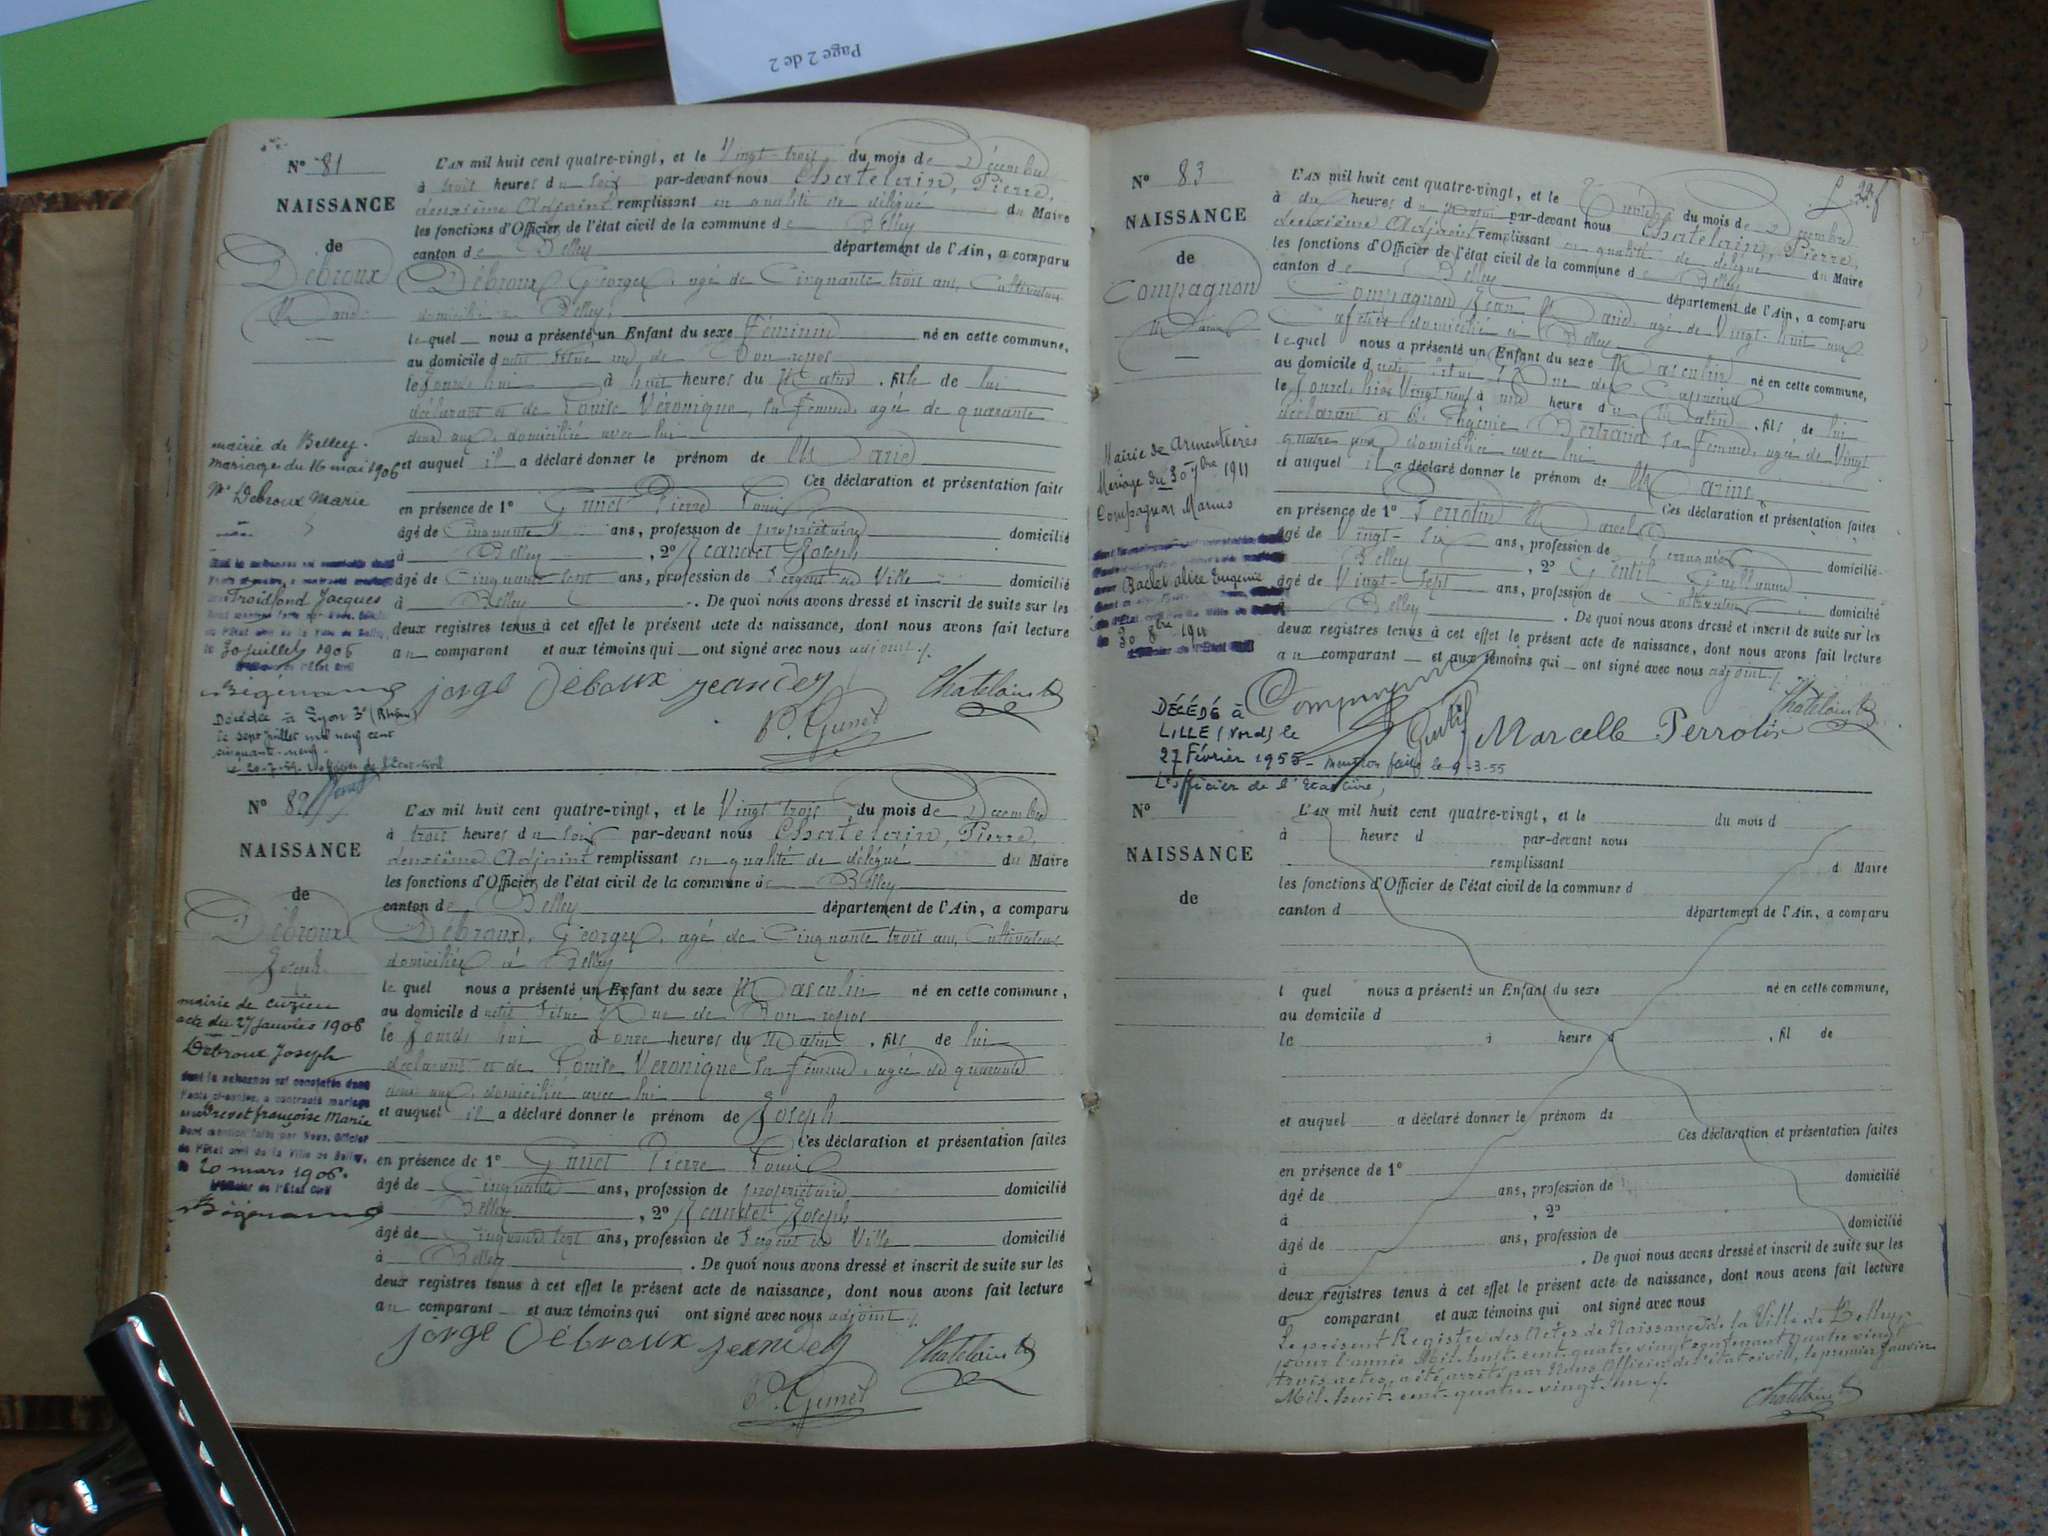 Page 2 de 2
N° 81
NAISSANCE
de
Débroux
Marie
L'AN mil huit cent quatre-vingt, et le Vingt-trois du mois de Décembre
à trois heures du soir par-devant nous Chatelain, Pierre,
deuxième Adjoint remplissant en qualité de délégué du Maire
les fonctions d'Officier de l'état civil de la commune de Belley
canton de Belley département de l'Ain, a comparu
Débroux, Georges, agé de Cinquante trois ans, Cultivateur
domicilié à Belley
lequel nous a présenté un Enfant du sexe féminin né en cette commune,
au domicile dudit situé rue de Bon repos
le jourd'hui à huit heures du Matin, fille de lui
déclarant et de Louise Véronique, sa femme, agée de quarante
deux ans, domiciliée avec lui
et auquel il a déclaré donner le prénom de Marie
Ces déclaration et présentation faites
en présence de 1° Gunet Pierre Louis
âgé de Cinquante ans, profession de propriétaire domicilié
à Belley, 2° Jeandet Joseph
âgé de Cinquante sept ans, profession de Sergent de Ville domicilié
à Belley. De quoi nous avons dressé et inscrit de suite sur les
deux registres tenus à cet effet le présent acte de naissance, dont nous avons fait lecture
au comparant et aux témoins qui ont signé avec nous adjoint ./.
jorge Débroux jeandet Chatelain
P. Gunet
mairie de Belley.
mariage du 16 mai 1906
Debroux Marie
Troisfond Jacques
le 30 juillet 1906
Décédée à Lyon 3e (Rhône)
le sept juillet mil neuf cent
cinquante-neuf.
L'officier de l'Etat-civil
N° 82
NAISSANCE
de
Débroux
Joseph
L'AN mil huit cent quatre-vingt, et le Vingt trois du mois de Décembre
à trois heures du soir par-devant nous Chatelain, Pierre,
deuxième Adjoint remplissant en qualité de délégué du Maire
les fonctions d'Officier de l'état civil de la commune de Belley
canton de Belley département de l'Ain, a comparu
Débroux, Georges, agé de Cinquante trois ans, Cultivateur
domicilié à Belley
lequel nous a présenté un Enfant du sexe Masculin né en cette commune,
au domicile dudit situé Rue de Bon repos
le jourd'hui à onze heures du Matin, fils de lui
déclarant et de Louise Véronique sa femme, agée de quarante
deux ans, domiciliée avec lui
et auquel il a déclaré donner le prénom de Joseph
Ces déclaration et présentation faites
en présence de 1° Gunet Pierre Louis
âgé de Cinquante ans, profession de propriétaire domicilié
à Belley, 2° Jeandet Joseph
âgé de Cinquante sept ans, profession de Sergent de Ville domicilié
à Belley. De quoi nous avons dressé et inscrit de suite sur les
deux registres tenus à cet effet le présent acte de naissance, dont nous avons fait lecture
au comparant et aux témoins qui ont signé avec nous adjoint ./.
jorge Débroux jeandet Chatelain
P. Gunet
mairie de Cuzieu
acte du 27 janvier 1906
Debroux Joseph
dont la naissance est constatée dans
l'acte ci-contre, a contracté mariage
avec Brevet françoise Marie
Dont mention faite par Nous, Officier
de l'Etat civil de la Ville de Belley,
le 20 mars 1906.
L'Officier de l'Etat Civil
N° 83
NAISSANCE
de
Compagnon
Marius
L'AN mil huit cent quatre-vingt, et le du mois de Décembre
à dix heures du matin par-devant nous Chatelain, Pierre,
deuxième Adjoint remplissant en qualité de délégué du Maire
les fonctions d'Officier de l'état civil de la commune de Belley
canton de Belley département de l'Ain, a comparu
Compagnon Jean Marie, agé de Vingt-huit ans
Cafetier domicilié à Belley
lequel nous a présenté un Enfant du sexe Masculin né en cette commune,
au domicile dudit situé Rue des Capucins
le Vingt neuf à une heure du Matin, fils de lui
déclarant et de Eugénie Bertrand sa femme, agée de Vingt
quatre ans domiciliée avec lui
et auquel il a déclaré donner le prénom de Marius
Ces déclaration et présentation faites
en présence de 1° Perrotin Marcel
âgé de Vingt-six ans, profession de Perruquier domicilié
à Belley, 2° Gentil Guillaume
âgé de Vingt-sept ans, profession de domicilié
à Belley. De quoi nous avons dressé et inscrit de suite sur les
deux registres tenus à cet effet le présent acte de naissance, dont nous avons fait lecture
au comparant et aux témoins qui ont signé avec nous adjoint ./.
Compagnon Gentil Marcelle Perrotin Chatelain
Mairie de Armentières
Mariage du 30 7bre 1911
Compagnon Marius
avec Baclet alice Eugénie
le 30 8bre 1911
DÉCÉDÉ à
LILLE (Nord) le
27 Février 1955 - mention faite le 9-3-55
L'officier de l'Etat civil,
N°
NAISSANCE
de
L'AN mil huit cent quatre-vingt, et le du mois d
à heure d par-devant nous
remplissant d Maire
les fonctions d'Officier de l'état civil de la commune d
canton d département de l'Ain, a comparu
l quel nous a présenté un Enfant du sexe né en cette commune,
au domicile d
le à heure d , fil de
et auquel a déclaré donner le prénom de
Ces déclaration et présentation faites
en présence de 1°
âgé de ans, profession de domicilié
à , 2°
âgé de ans, profession de domicilié
à . De quoi nous avons dressé et inscrit de suite sur les
deux registres tenus à cet effet le présent acte de naissance, dont nous avons fait lecture
a comparant et aux témoins qui ont signé avec nous
Le présent Registre des Actes de Naissances de la Ville de Belley,
pour l'année Mil-huit-cent-quatre vingt contenant quatre vingt
trois actes, a été arrêté par Nous, Officier de l'état civil, le premier Janvier
Mil-huit-cent-quatre-vingt-un ./.
Chatelain